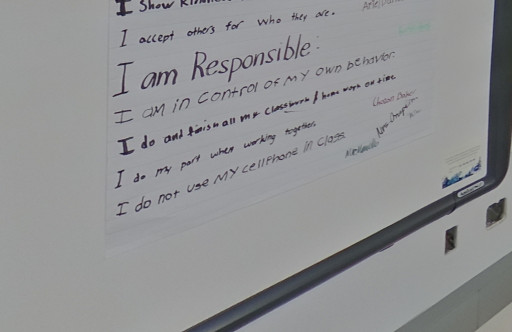 I Show
I accept others for who they are.
I am Responsible:
I am in control of my own behavior.
I do and finish all my classwork & home work on time
I do my part when working together.
I do not use my cellphone in class.